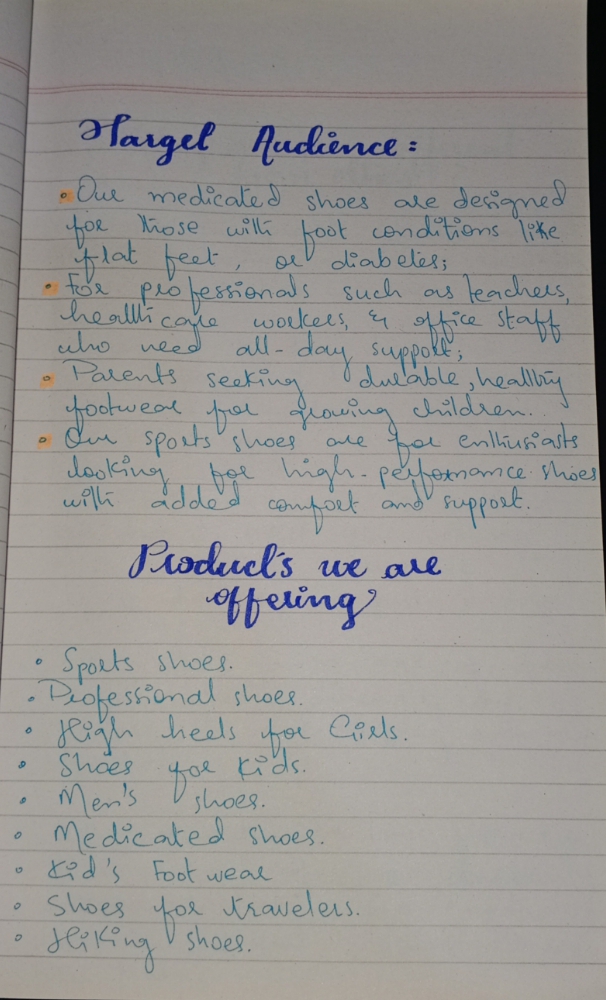 Target Audience:
• Our medicated shoes are designed
for those with foot conditions like
flat feet, or diabetes;
• For professionals such as teachers,
healthcare workers, & office staff
who need all-day support;
• Parents seeking durable, healthy
footwear for growing children..
• Our sports shoes are for enthusiasts
looking for high-performance shoes
with added comfort and support.
Product's we are
offering
• Sports shoes.
• Professional shoes.
• High heels for Girls.
• Shoes for Kids.
• Men's shoes.
• Medicated shoes.
• Kid's Footwear
• Shoes for travelers.
• Hiking shoes.